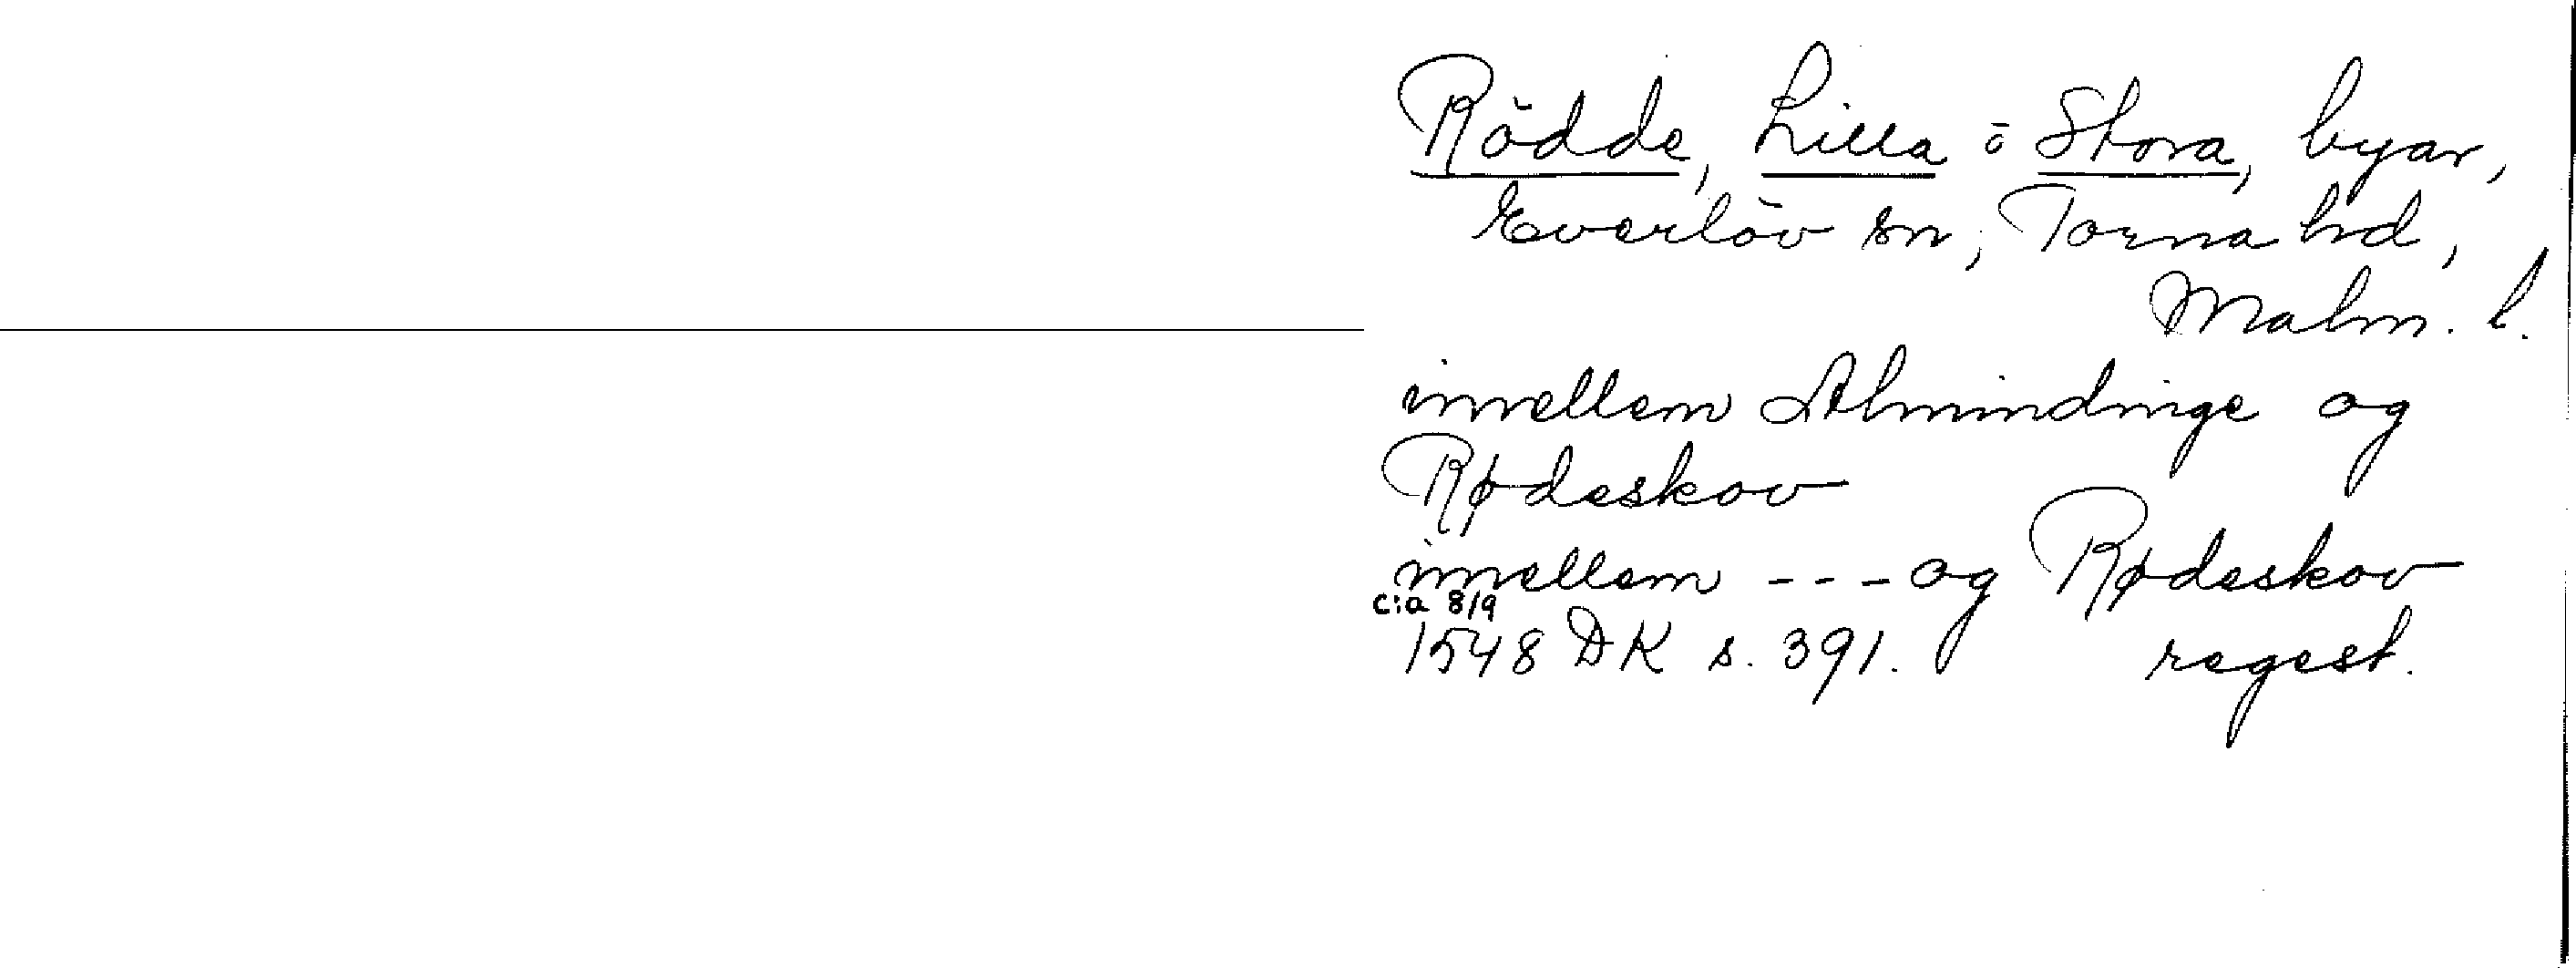 Rödde, Lilla o Stora, byar,
Everlöv sn, Torna hd,
Malm. l.
imellem Almindinge og
Rødeskov
imellem --- og Rødeskov
c:a 8/9
1548 DK s. 391. regest.